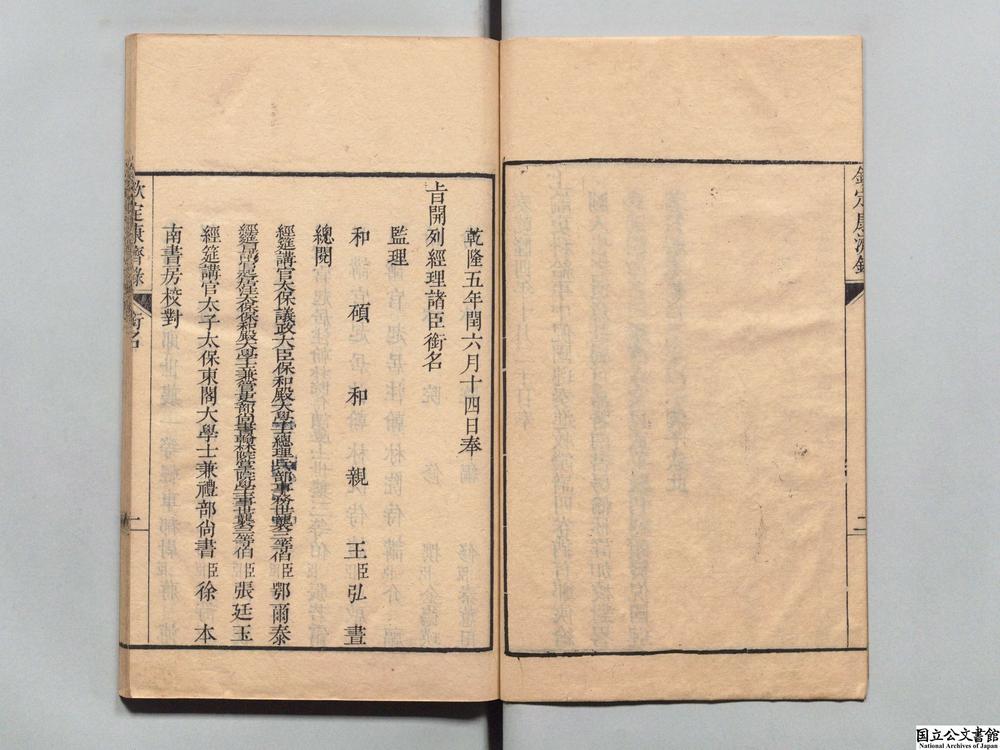 欽定康濟錄
二
乾隆五年閏六月十四日奉
旨開列經理諸臣銜名
監理
和碩和親王臣弘晝
總閱
經筵講官太保議政大臣保和殿大學士總理兵部事務世襲三等伯臣鄂爾泰
經筵講官太保保和殿大學士兼管吏部尚書翰林院掌院學士事世襲三等伯臣張廷玉
經筵講官太子太保東閣大學士兼禮部尚書臣徐本
南書房校對
欽定康濟錄 銜名
一
国立公文書館
National Archives of Japan